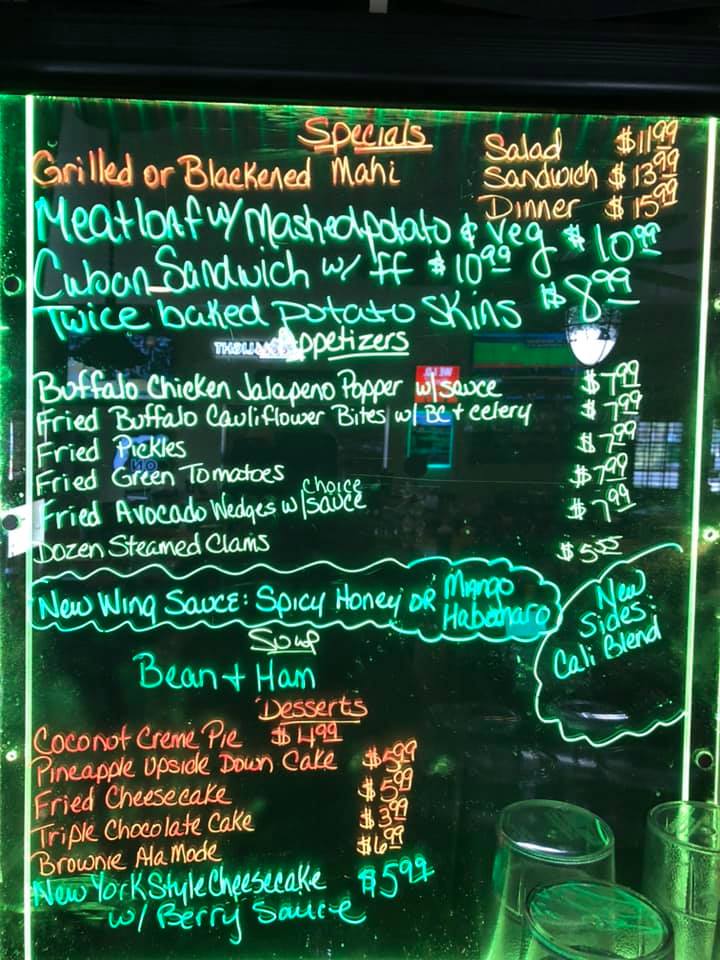 Specials
Grilled or Blackened Mahi
Salad $11.99
Sandwich $13.99
Dinner $15.99
Meatloaf w/ Mashed potato & veg $10.99
Cuban Sandwich w/ FF $10.99
Twice baked potato skins $8.99
Appetizers
Buffalo Chicken Jalapeno Popper w/ sauce $7.99
Fried Buffalo Cauliflower Bites w/ BC + celery $7.99
Fried Pickles $7.99
Fried Green Tomatoes $7.99
Fried Avocado Wedges w/ choice sauce $7.99
Dozen Steamed Clams $5.55
New Wing Sauce: Spicy Honey or Mango Habanaro
New Sides: Cali Blend
Soup
Bean + Ham
Desserts
Coconut Creme Pie $4.99
Pineapple Upside Down Cake $5.99
Fried Cheesecake $5.99
Triple Chocolate Cake $3.99
Brownie Ala Mode $6.99
New York Style Cheesecake $5.99
w/ Berry Sauce